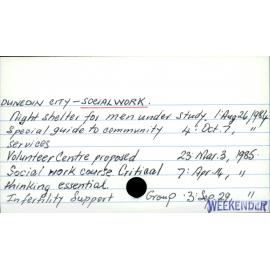 DUNEDIN CITY - SOCIAL WORK.
Night shelter for men under study. 1: Aug 26, 1984
Special guide to community 4: Oct. 7, "
services
Volunteer Centre proposed 23: Mar. 3, 1985.
Social work course. Critical 7: Apr. 14, "
thinking essential.
Infertility Support Group. 3: Sep. 29, "
WEEKENDER